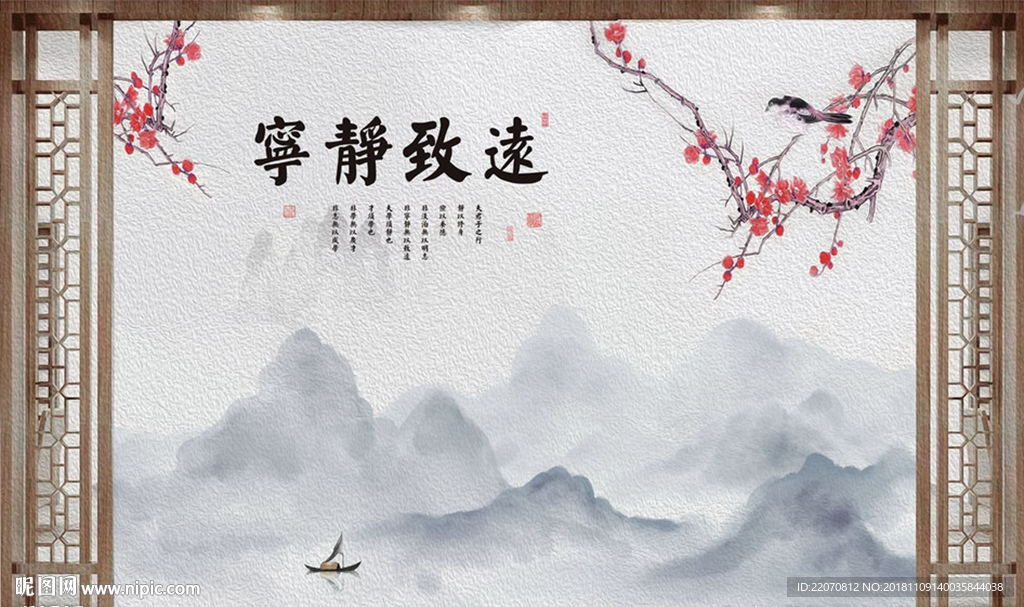 寧靜致遠
夫君子之行
靜以修身
儉以養德
非淡泊無以明志
非寧靜無以致遠
夫學須靜也
才須學也
非學無以廣才
非志無以成學
昵图网 www.nipic.com
ID:22070812 NO:20181109140035844038